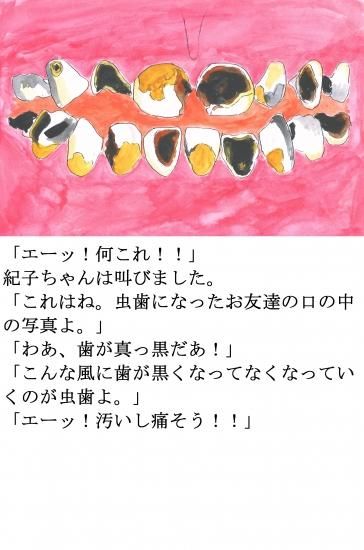 「エーッ！何これ！！」
紀子ちゃんは叫びました。
「これはね。虫歯になったお友達の口の中
の写真よ。」
「わあ、歯が真っ黒だあ！」
「こんな風に歯が黒くなってなくなってい
くのが虫歯よ。」
「エーッ！汚いし痛そう！！」